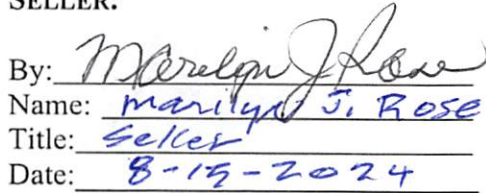 SELLER:
By: Marilyn J. Rose
Name: Marilyn J. Rose
Title: Seller
Date: 8-15-2024